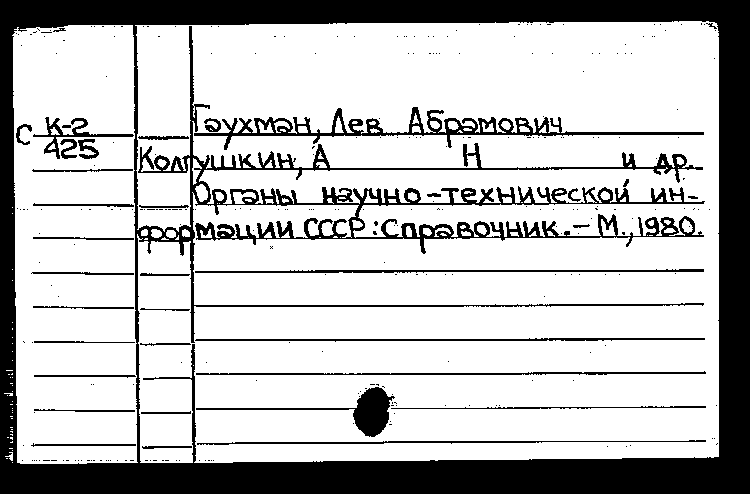 Гаухман, Лев Абрамович
С К-2
425
Колпушкин, А Н и др.
Органы научно-технической ин-
формации СССР: Справочник. - М., 1980.